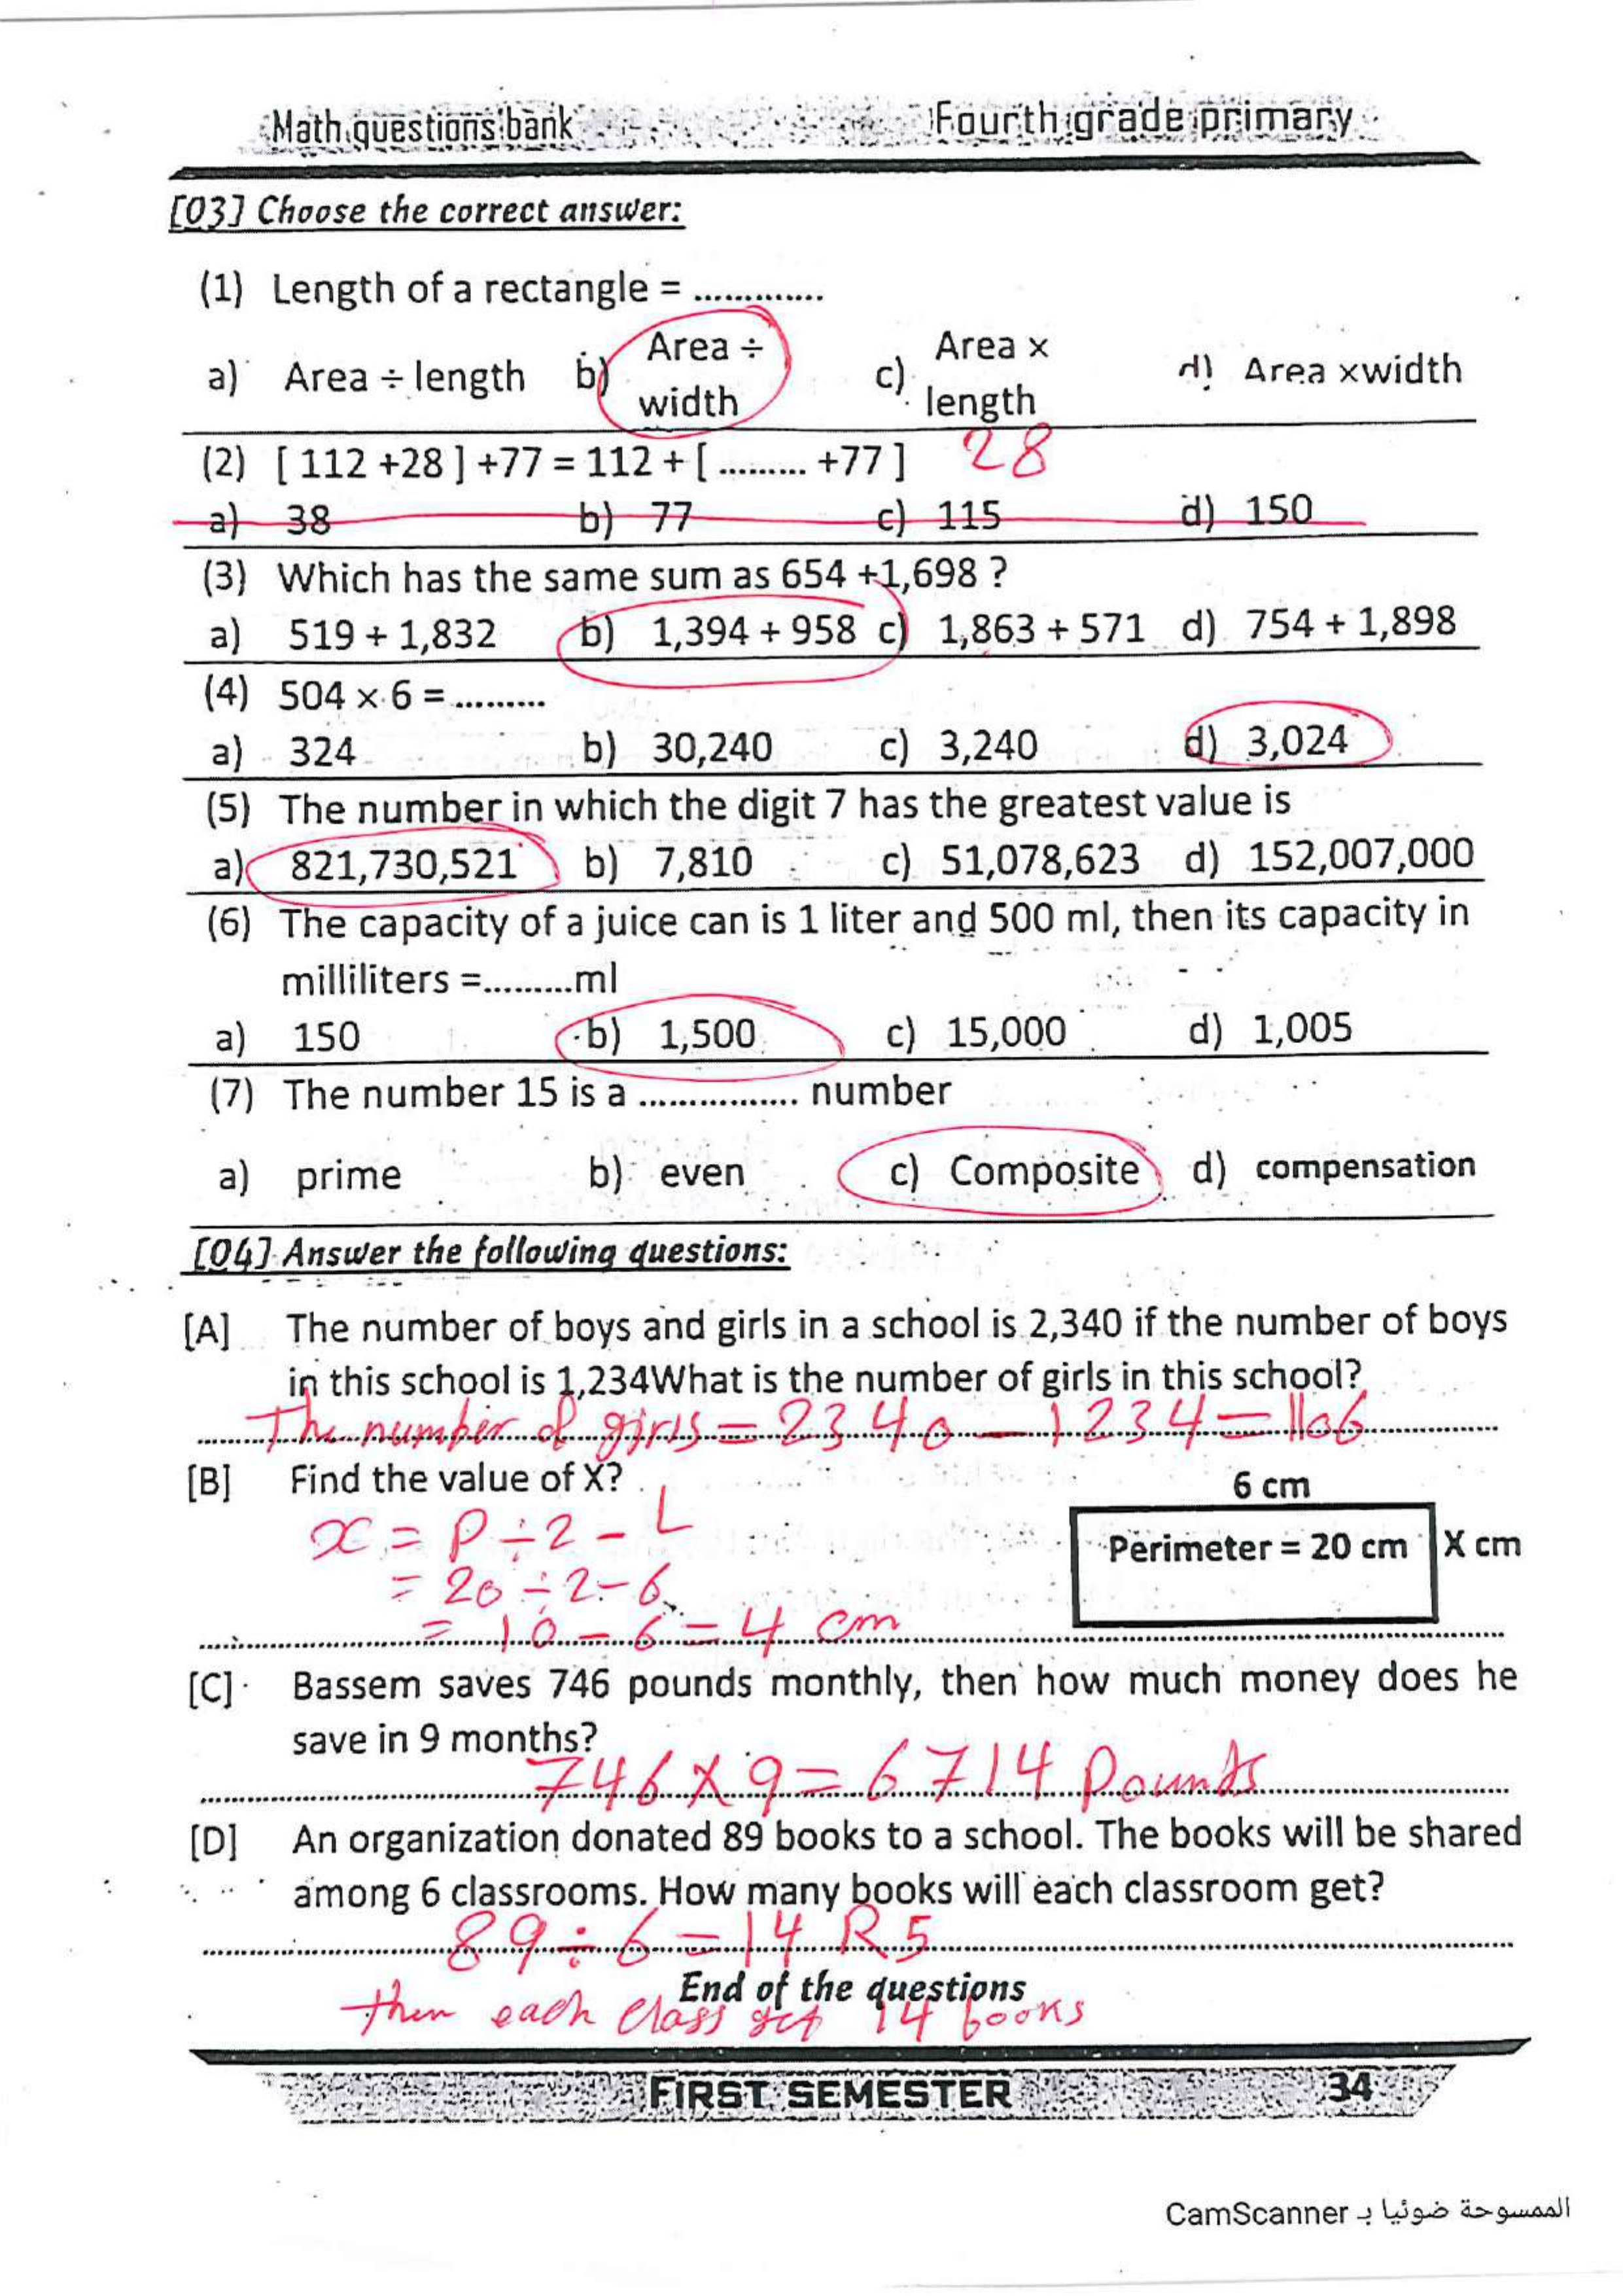 Math questions bank Fourth grade primary
[03] Choose the correct answer:
(1) Length of a rectangle = .............
a) Area ÷ length b) Area ÷ width c) Area × length d) Area ×width
(2) [ 112 +28 ] +77 = 112 + [ ......... +77 ] 28
a) 38 b) 77 c) 115 d) 150
(3) Which has the same sum as 654 +1,698 ?
a) 519 + 1,832 b) 1,394 + 958 c) 1,863 + 571 d) 754 + 1,898
(4) 504 × 6 = ..........
a) 324 b) 30,240 c) 3,240 d) 3,024
(5) The number in which the digit 7 has the greatest value is
a) 821,730,521 b) 7,810 c) 51,078,623 d) 152,007,000
(6) The capacity of a juice can is 1 liter and 500 ml, then its capacity in
milliliters =..........ml
a) 150 b) 1,500 c) 15,000 d) 1,005
(7) The number 15 is a ................ number
a) prime b) even c) Composite d) compensation
[04] Answer the following questions:
[A] The number of boys and girls in a school is 2,340 if the number of boys
in this school is 1,234What is the number of girls in this school?
The number of girls = 2340 - 1234 = 1106
[B] Find the value of X?
6 cm
x = P ÷ 2 - L
Perimeter = 20 cm X cm
= 20 ÷ 2 - 6
= 10 - 6 = 4 cm
[C] Bassem saves 746 pounds monthly, then how much money does he
save in 9 months?
746 × 9 = 6714 Pounds
[D] An organization donated 89 books to a school. The books will be shared
among 6 classrooms. How many books will each classroom get?
89 ÷ 6 = 14 R 5
End of the questions
then each class get 14 books
FIRST SEMESTER 34
الممسوحة ضوئيا بـ CamScanner